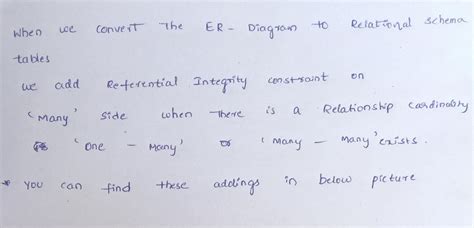 When we convert the ER - Diagram to Relational schema
tables
we add Referential Integrity constraint on
'Many' side when there is a Relationship cardinality
'One - Many' or 'Many - Many' exists.
* you can find these addings in below picture